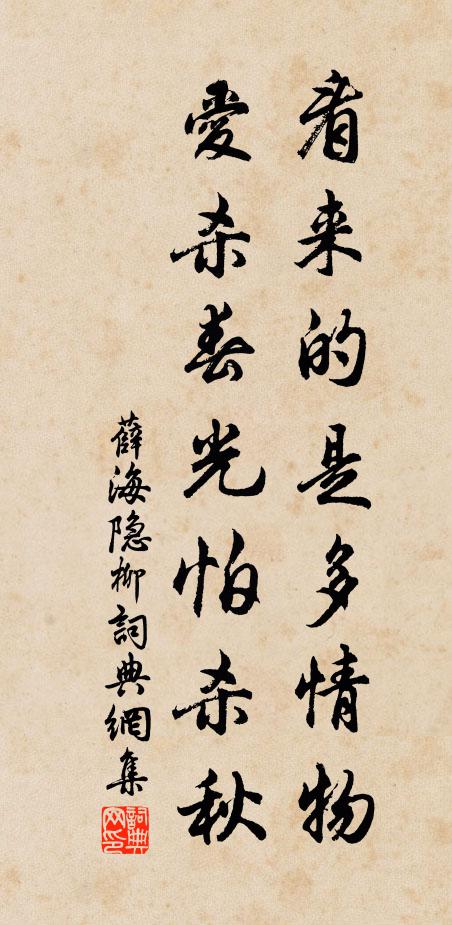 看来的是多情物
愛杀春光怕杀秋
薛海隐柳詞典網集
詞典网印